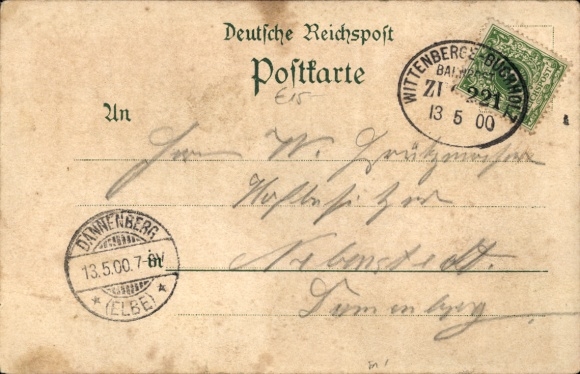 Deutsche Reichspost
Postkarte
WITTENBERGE-BUCHHOLZ
BAHNPOST
ZUG 221
13 5 00
E15-
An
Herrn W.
Hofbesitzer
Nebenstedt.
Dannenberg
DANNENBERG
13.5.00.7-8V
* (ELBE) *